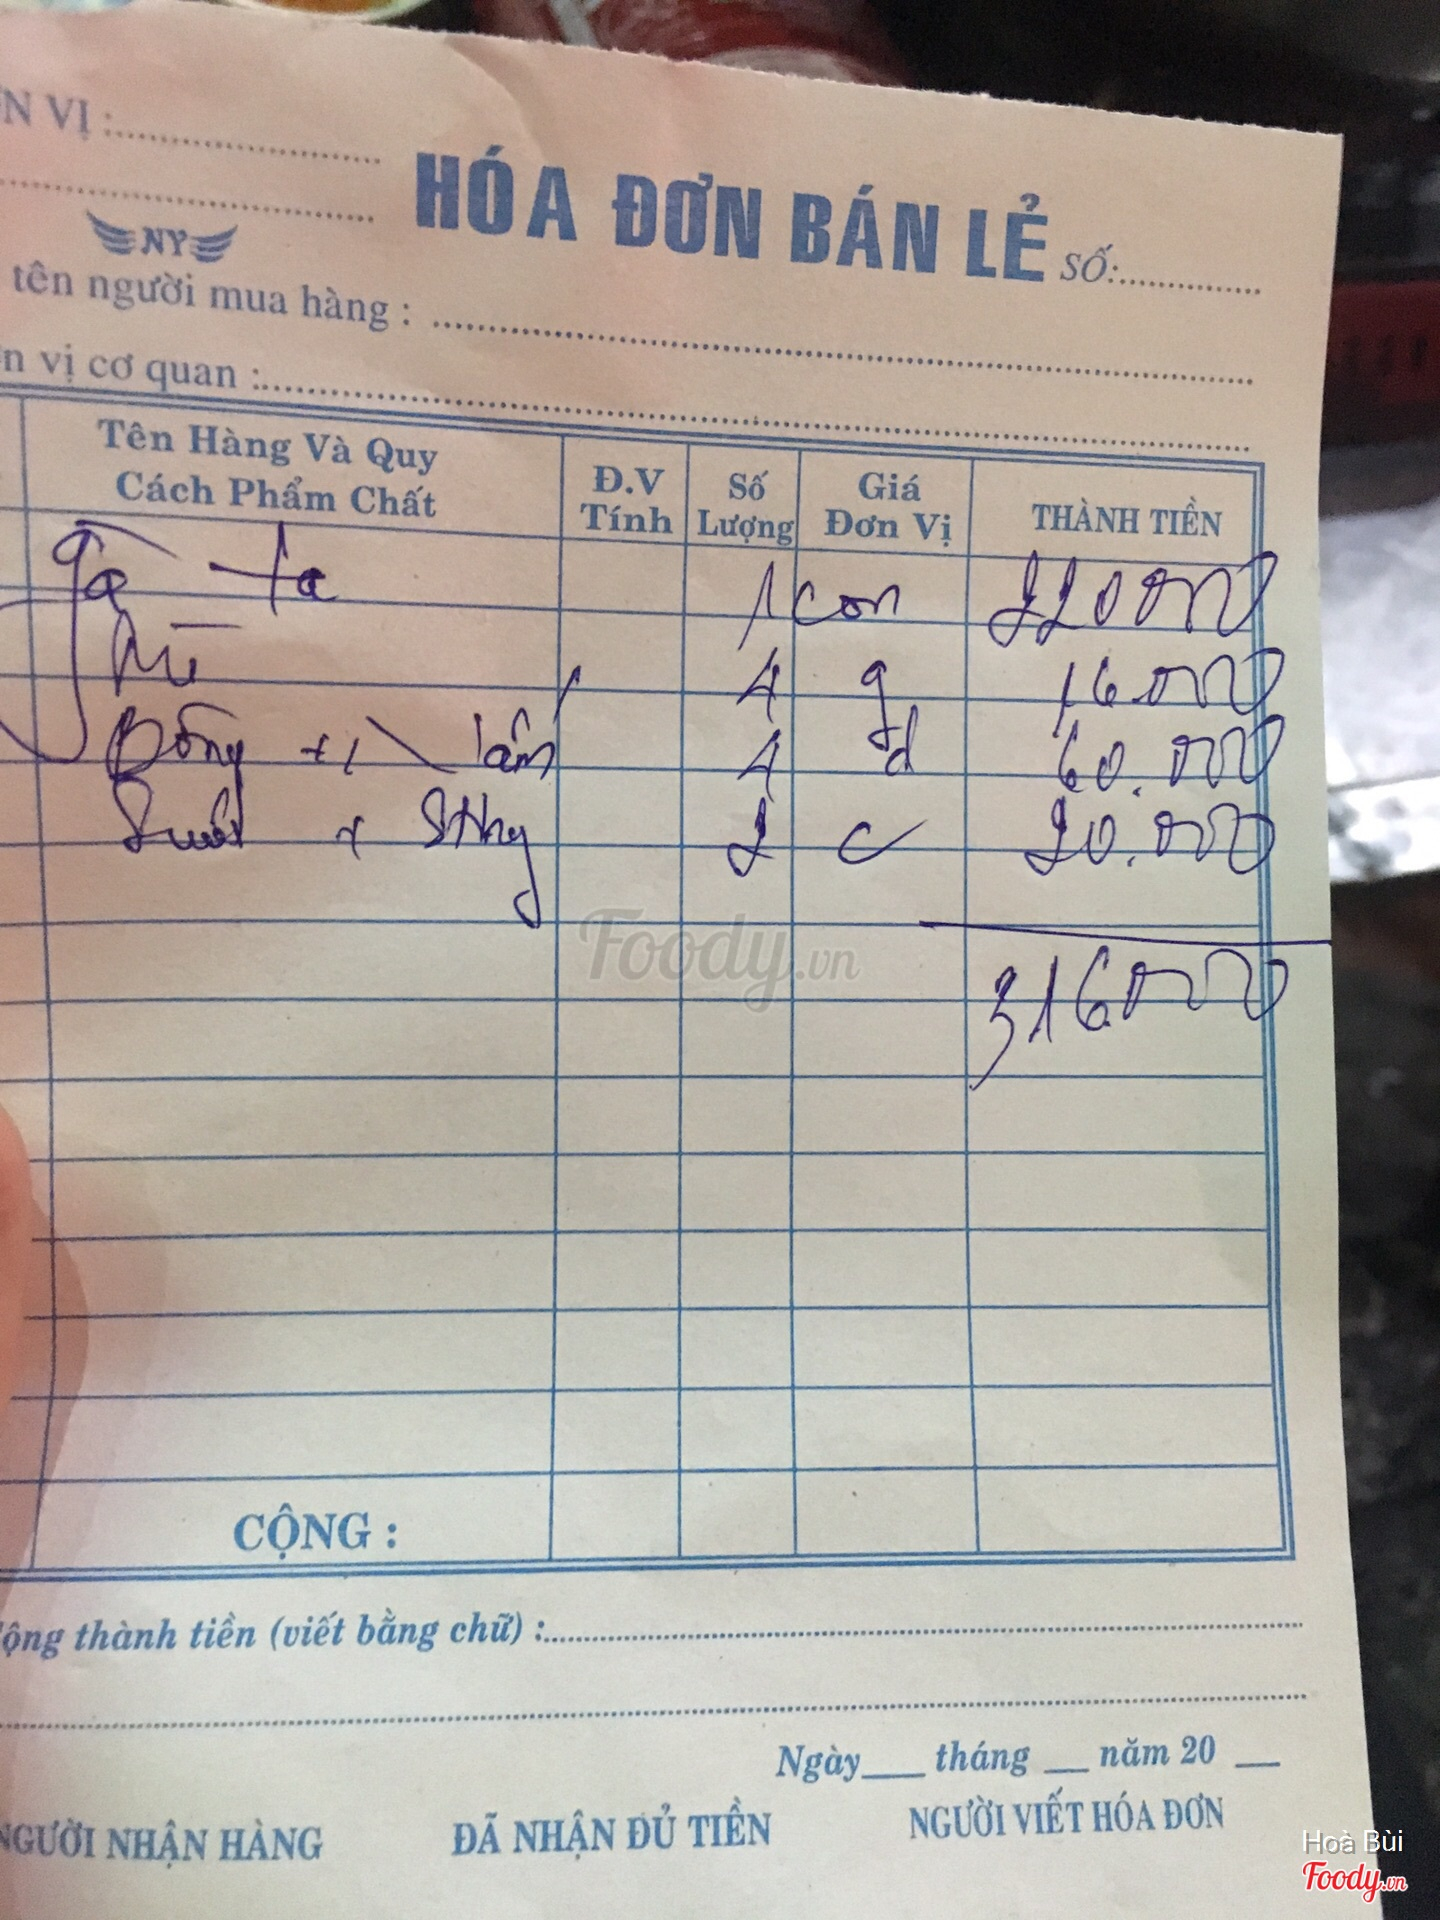 ƠN VỊ :
HÓA ĐƠN BÁN LẺ SỐ:
NY
tên người mua hàng :
ơn vị cơ quan :
Tên Hàng Và Quy Cách Phẩm Chất Đ.V Tính Số Lượng Giá Đơn Vị THÀNH TIỀN
gà ta 1 con 220000
Mì 4 g 16.000
+ 1 4 d 60.000
Suối + Sting 2 c 20.000
Foody.vn
316000
CỘNG :
Cộng thành tiền (viết bằng chữ) :
Ngày tháng năm 20
NGƯỜI NHẬN HÀNG ĐÃ NHẬN ĐỦ TIỀN NGƯỜI VIẾT HÓA ĐƠN
Hoà Bùi
Foody.vn